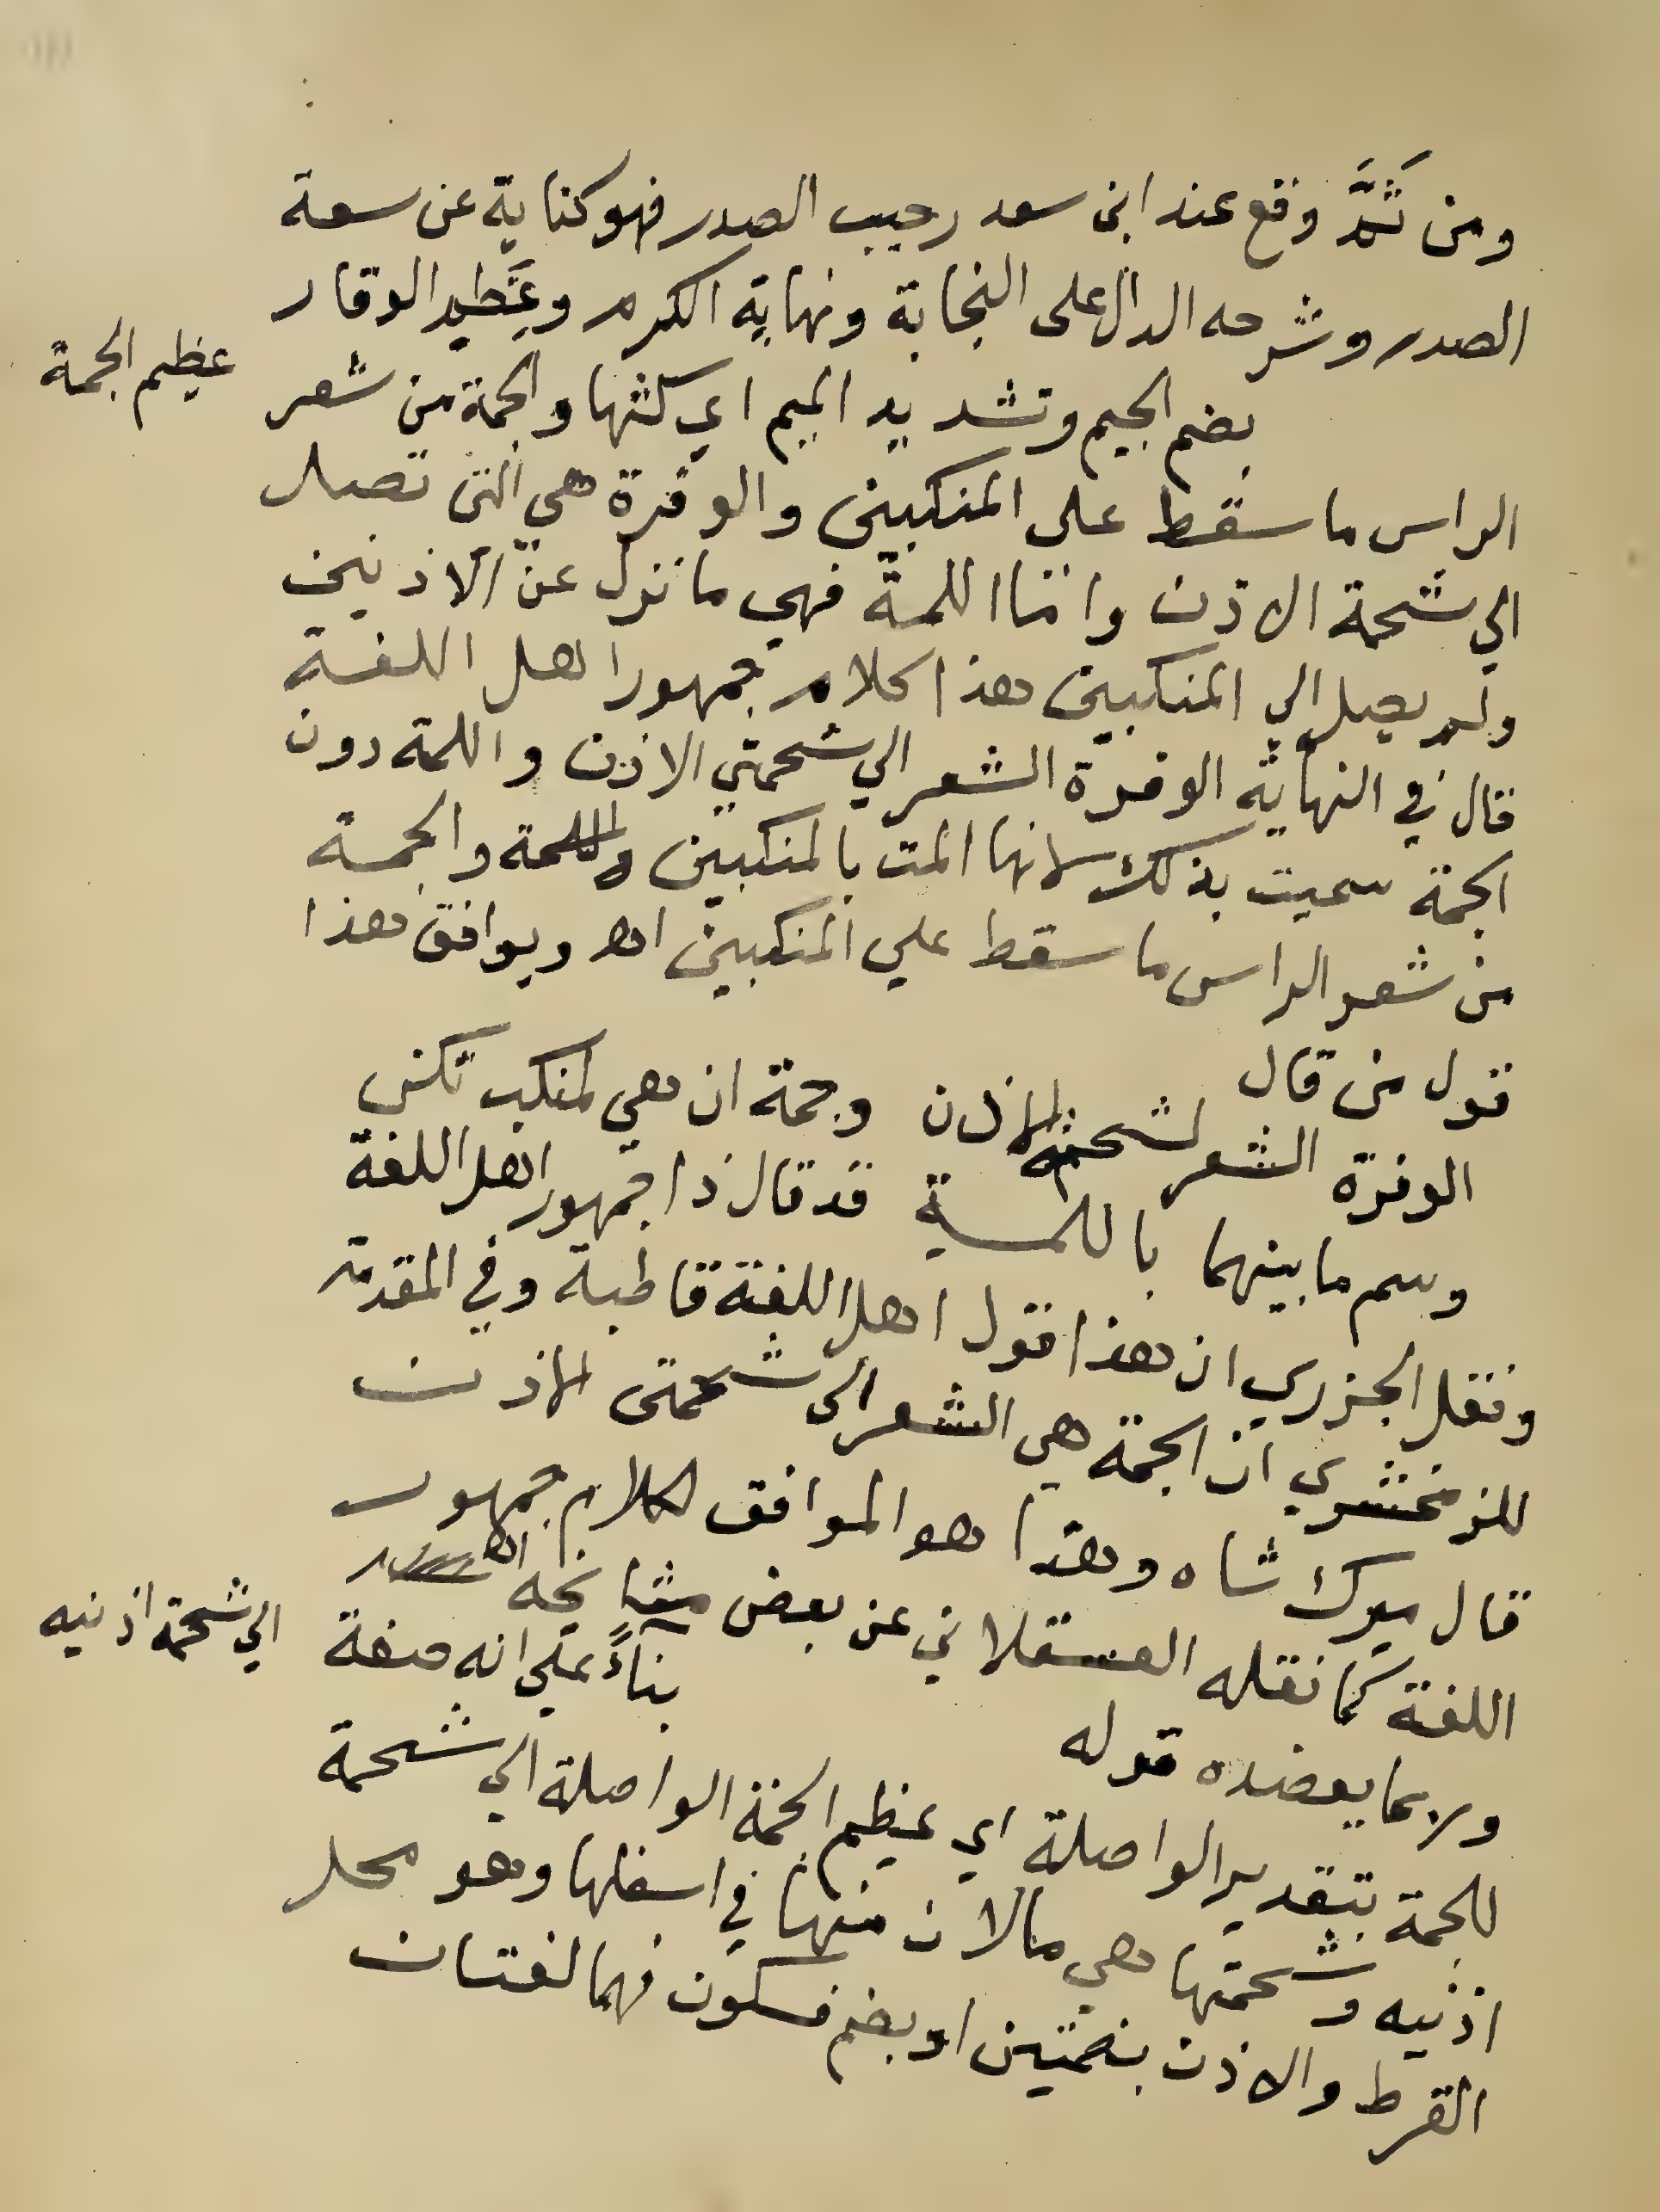 ومن ثَمَّ وقع عند ابن سعد رحيب الصدر فهو كناية عن سعة
الصدر وشرحه الدال على النجابة ونهاية الكرم وعَظيم الوقار
عظيم الجمة
بضم الجيم وتشديد الميم اي كثها والجمة من شعر
الراس ما سقط على المنكبين والوفرة هي التي تصل
الي شحمة الاذن واما اللمة فهي ما نزل عن الاذنين
ولم يصل الي المنكبين هذا كلام جمهور اهل اللغة
قال في النهاية الوفرة الشعر الي شحمتي الاذن واللمة دون
الجمة سميت بذلك لانها المت بالمنكبين والجمة
من شعر الراس ما سقط علي المنكبين اه ويوافق هذا
قول من قال
الوفرة الشعر لشحمة الاذن وجمة ان هي لمنكب تكن
وسم ما بينهما باللمة قد قال ذا جمهور اهل اللغة
ونقل الجزري ان هذا قول اهل اللغة قاطبة وفي المقدمة
للزمخشري ان الجمة هي الشعر الى شحمتى الاذن
قال ميرك شاه وهذا هو الموافق لكلام جمهور
اللغة كما نقله العسقلاني عن بعض مشايخه اه
ومما يعضده قوله
الي شحمة اذنيه
بناءً علي انه صفة
للجمة بتقدير الواصلة اي عظيم الجمة الواصلة الي شحمة
اذنيه وشحمتها هي ما لان منها في اسفلها وهو محل
القرط والاذن بضمتين او بضم فسكون فهما لغتان